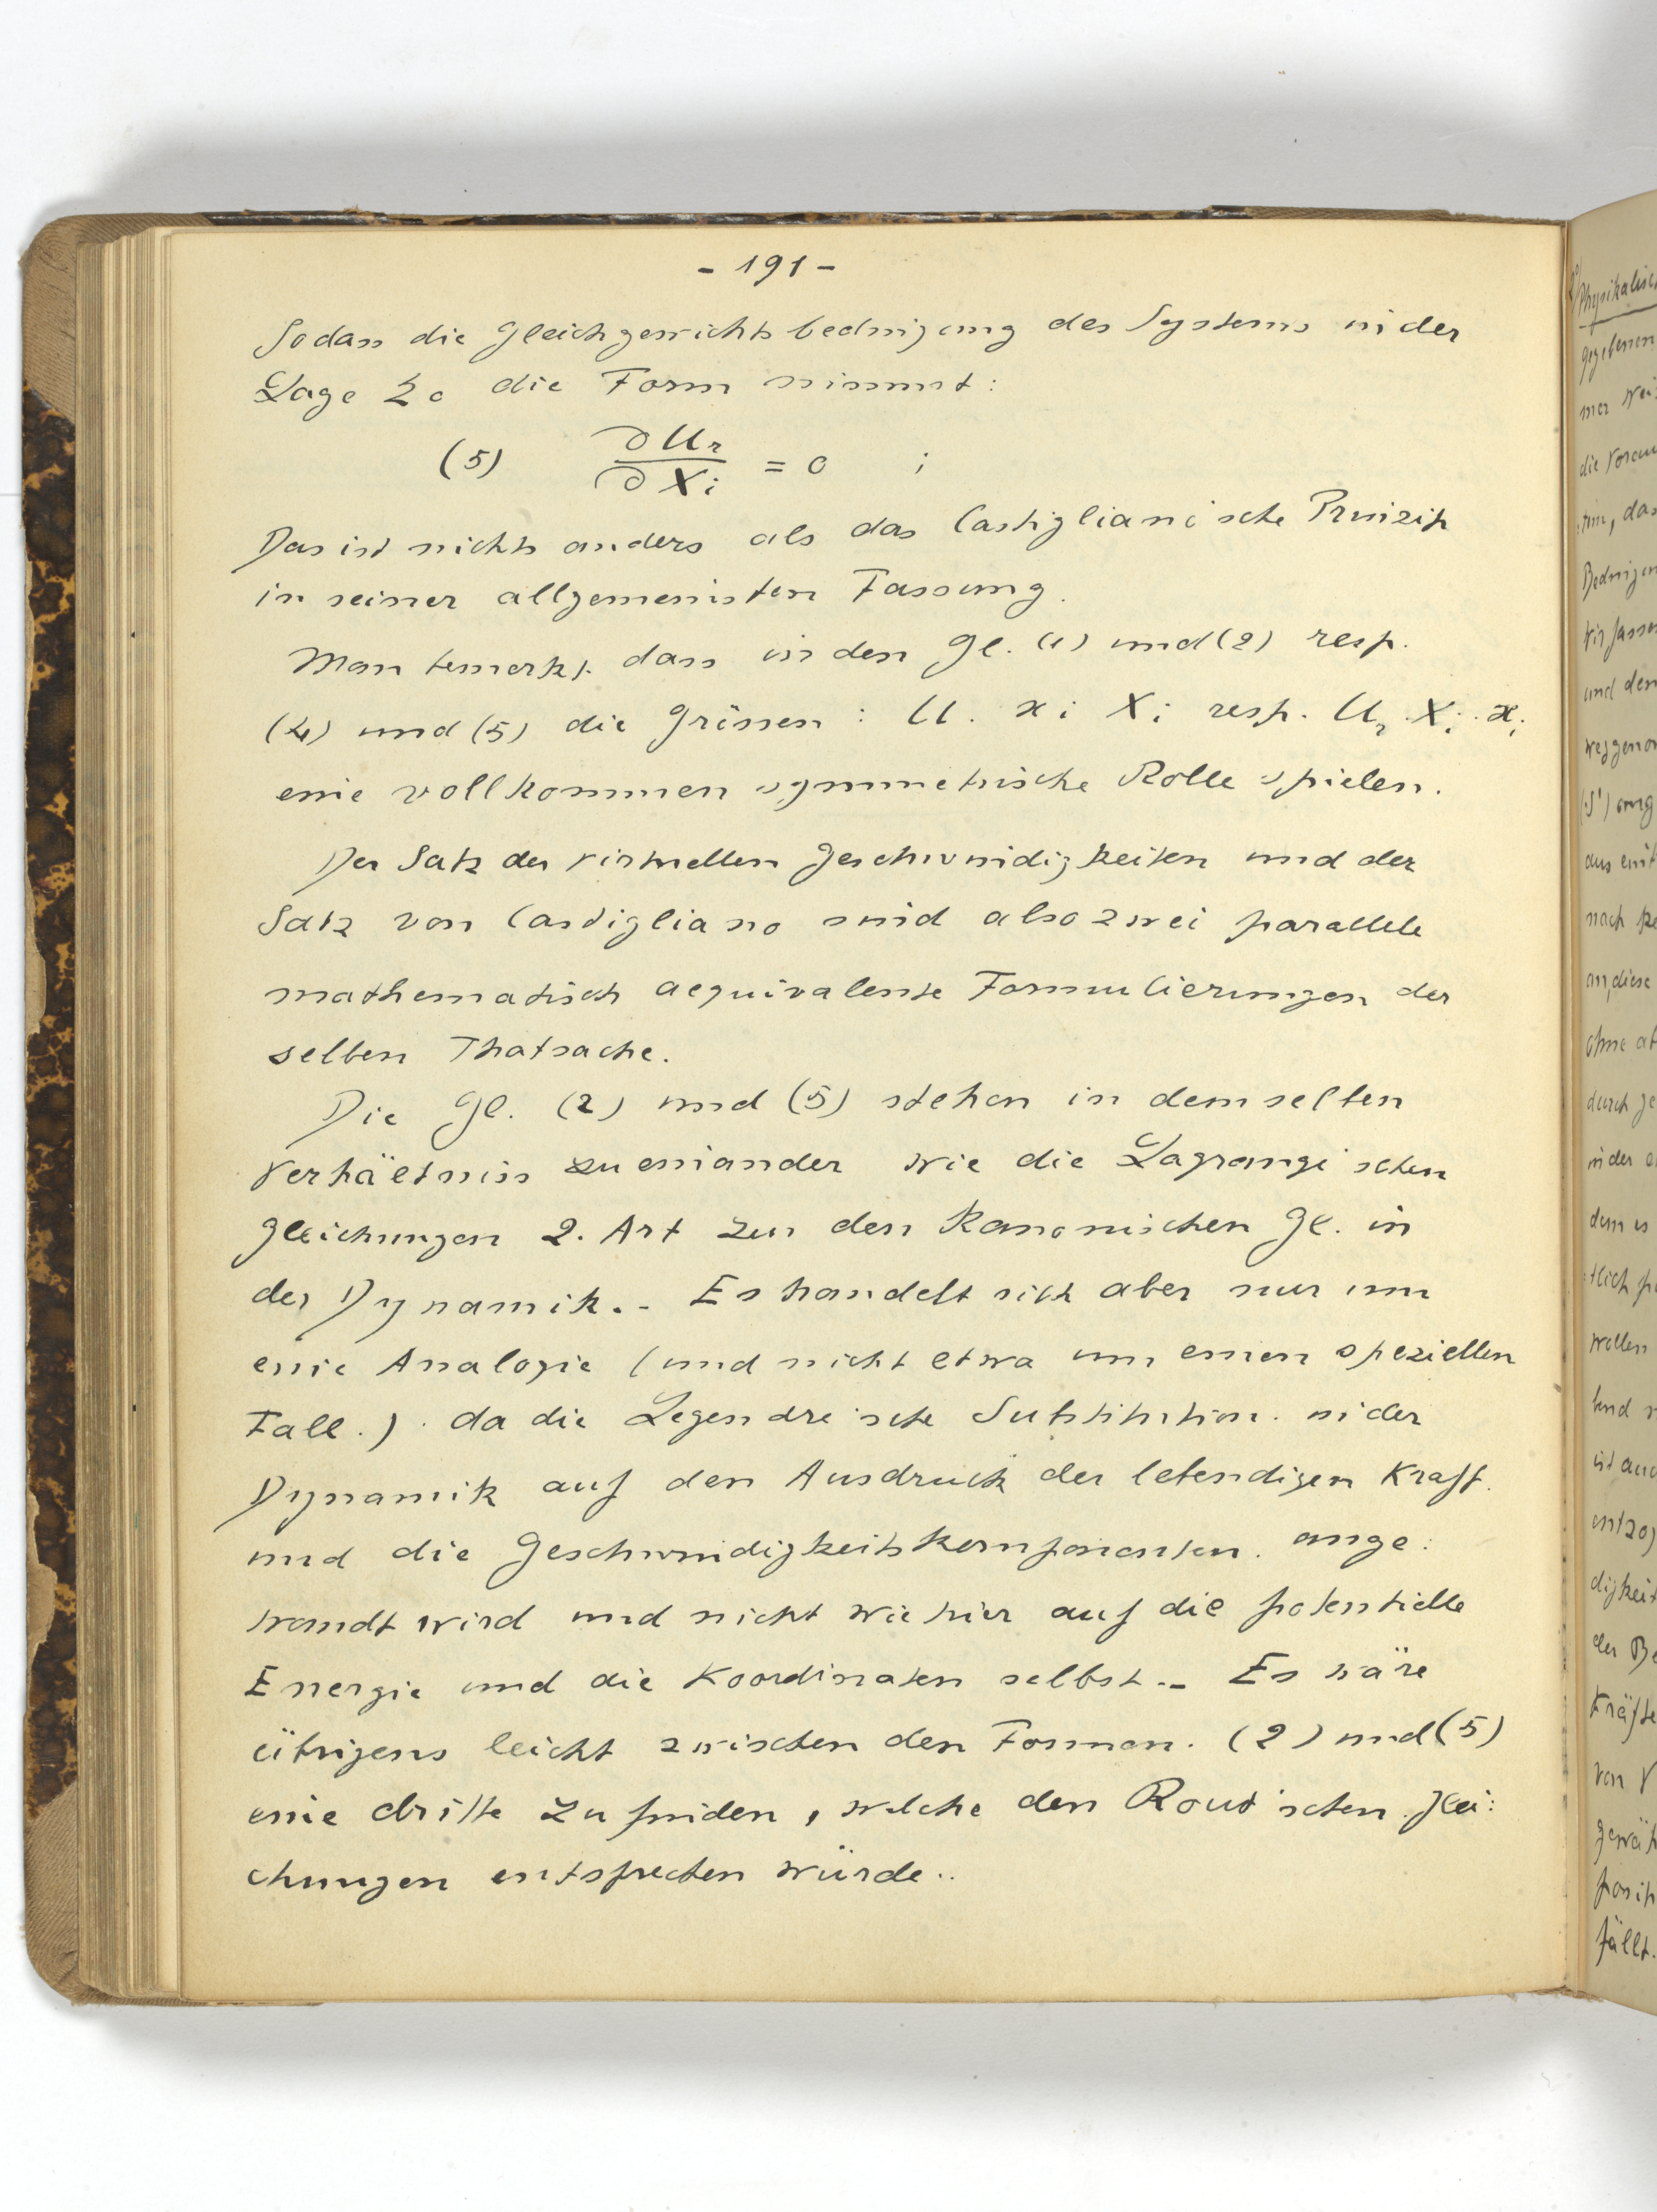 - 191 -
Sodass die Gleichgewichtsbedingung des Systems in der
Lage Σo die Form nimmt:
(5) ∂Ur / ∂Xi = 0 ;
Das ist nichts anders als das Castigliani'sche Prinzip
in seiner allgemeinsten Fassung.
Man bemerkt dass in den Gl. (1) und (2) resp.
(4) und (5) die Grössen : U. xi Xi resp. Ur. Xi. xi
eine vollkommen symmetrische Rolle spielen.
Der Satz der virtuellen Geschwindigkeiten und der
Satz von Castigliano sind also zwei parallele
mathematisch aequivalente Formulierungen der
selben Thatsache.
Die Gl. (2) und (5) stehen in demselben
Verhältniss zueinander wie die Lagrange'schen
Gleichungen 2. Art zu den Kanonischen Gl. in
der Dynamik.- Es handelt sich aber nur um
eine Analogie (und nicht etwa um einen speziellen
Fall.). da die Legendre'sche Substitution. in der
Dynamik auf den Ausdruck der lebendigen Kraft.
und die Geschwindigkeitskomponenten. ange:
wandt wird und nicht wie hier auf die potentielle
Energie und die Koordinaten selbst.- Es wäre
übrigens leicht zwischen den Formen. (2) und (5)
eine dritte zu finden, welche den Rout'schen Glei:
chungen entsprechen würde..
Physikalisch
gegebenen
die Voraus
und den
an diese
wollen
ist auch
Kräfte
von V
fällt.